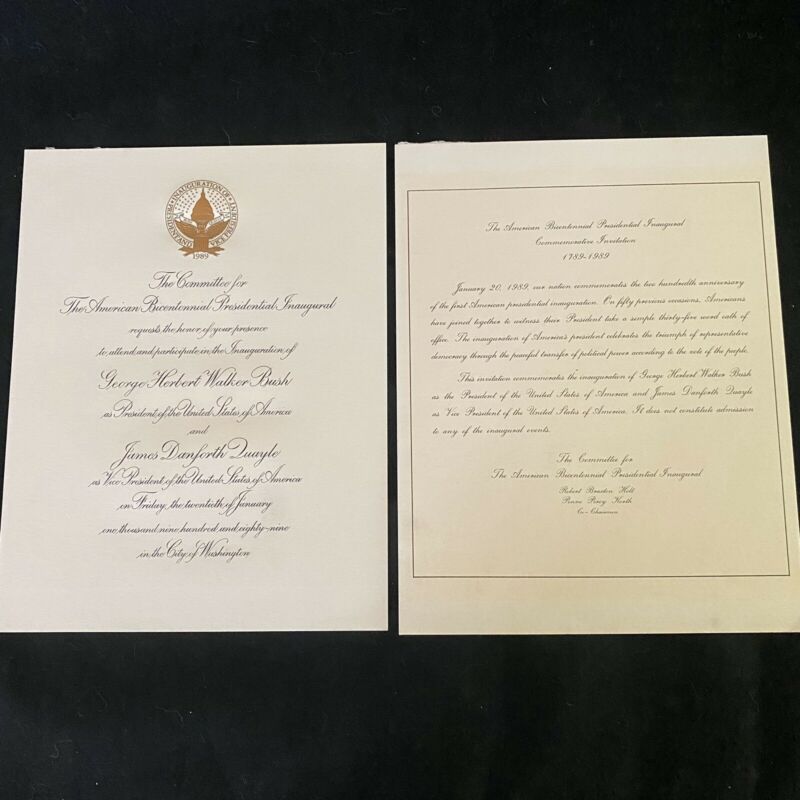 INAUGURATION OF
PRESIDENT AND
VICE PRESIDENT
1989
The Committee for
The American Bicentennial Presidential Inaugural
requests the honor of your presence
to attend and participate in the Inauguration of
George Herbert Walker Bush
as President of the United States of America
and
James Danforth Quayle
as Vice President of the United States of America
on Friday, the twentieth of January
one thousand nine hundred and eighty-nine
in the City of Washington
The American Bicentennial Presidential Inaugural
Commemorative Invitation
1789-1989
January 20, 1989, our nation commemorates the two hundredth anniversary
of the first American presidential inauguration. On fifty previous occasions, Americans
have joined together to witness their President take a simple thirty-five word oath of
office. The inauguration of America's president celebrates the triumph of representative
democracy through the peaceful transfer of political power according to the vote of the people.
This invitation commemorates the inauguration of George Herbert Walker Bush
as the President of the United States of America and James Danforth Quayle
as Vice President of the United States of America. It does not constitute admission
to any of the inaugural events.
The Committee for
The American Bicentennial Presidential Inaugural
Robert Braxton Holt
Penne Percy Korth
Co-Chairmen